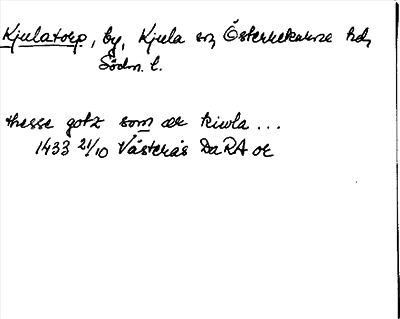 Kjulatorp, by, Kjula sn, Österrekarne hd,
Södm. l.
thesse gotz som är kiwla ...
1433 21/10 Västerås DaRA or